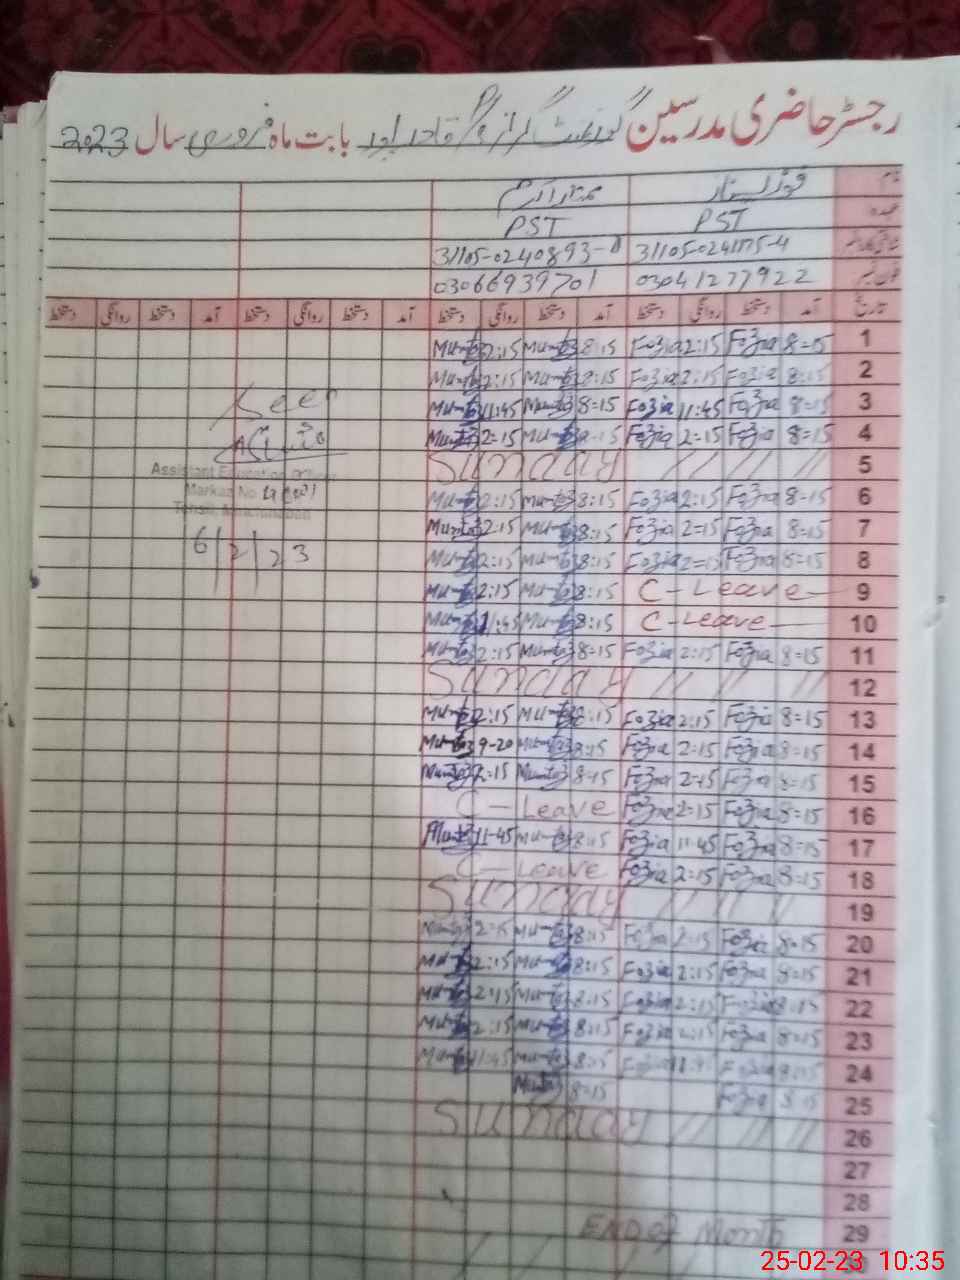 رجسٹر حاضری مدرسین گورنمنٹ گرلز پ/س قادر پور بابت ماہ فروری سال 2023
نام فوزیہ ستار ممتاز اکرم
عہدہ PST PST
شناختی کارڈ نمبر 31105-0241175-4 31105-0240893-
فون نمبر 03041277922 03066939701
تاریخ آمد دستخط روانگی دستخط آمد دستخط روانگی دستخط آمد دستخط روانگی دستخط آمد دستخط روانگی دستخط
1 8=15 Fozia 2:15 Fozia 8:15 Mumtaz 2:15 Mumtaz
2 8:15 Fozia 2:15 Fozia 8:15 Mumtaz 2:15 Mumtaz
3 8=15 Fozia 11:45 Fozia 8=15 Mumtaz 11:45 Mumtaz
4 8=15 Fozia 2=15 Fozia 8=15 Mumtaz 2=15 Mumtaz
5 Sunday
6 8:15 Fozia 2:15 Fozia 8:15 Mumtaz 2:15 Mumtaz
7 8=15 Fozia 2=15 Fozia 8:15 Mumtaz 2:15 Mumtaz
8 8=15 Fozia 2=15 Fozia 8:15 Mumtaz 2:15 Mumtaz
9 C-Leave 8:15 Mumtaz 2:15 Mumtaz
10 C-Leave 8:15 Mumtaz 11:45 Mumtaz
11 8=15 Fozia 2:15 Fozia 8=15 Mumtaz 2:15 Mumtaz
12 Sunday
13 8=15 Fozia 2:15 Fozia 8:15 Mumtaz 2:15 Mumtaz
14 8=15 Fozia 2:15 Fozia 8:15 Mumtaz 9-20 Mumtaz
15 8=15 Fozia 2:15 Fozia 8:15 Mumtaz 2:15 Mumtaz
16 8=15 Fozia 2=15 Fozia C-Leave
17 8=15 Fozia 11:45 Fozia 8:15 Mumtaz 11-45 Mumtaz
18 8=15 Fozia 2:15 Fozia C-Leave
19 Sunday
20 8:15 Fozia 2:15 Fozia 8:15 Mumtaz 2:15 Mumtaz
21 8=15 Fozia 2:15 Fozia 8:15 Mumtaz 2:15 Mumtaz
22 8:15 Fozia 2:15 Fozia 8:15 Mumtaz 2:15 Mumtaz
23 8=15 Fozia 2:15 Fozia 8:15 Mumtaz 2:15 Mumtaz
24 8:15 Fozia 11:45 Fozia 8:15 Mumtaz 11:45 Mumtaz
25 8:15 Fozia 8=15 Mumtaz
26 Sunday
27
28
29 END of Month
30
Seen
Assistant Education Officer
Markaz No
Tehsil Minchinabad
6/2/23
25-02-23 10:35